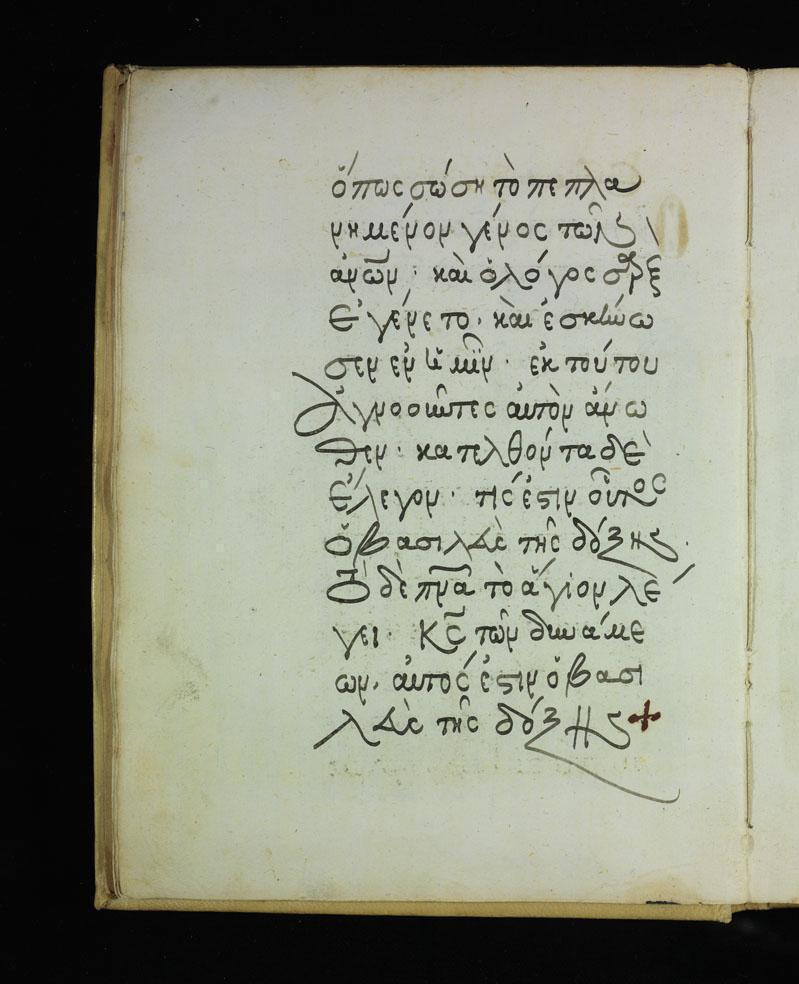 ὅπως σώση τὸ πεπλα
νημένον γένος τῶν
ἀνῶν · καὶ ὁ λόγος σὰρξ
ἐγένετο · καὶ ἐσκήνω
σεν ἐν ἡμῖν · ἐκ τούτου
ἀγνοοῦντες αὐτὸν ἄνω
θεν · κατελθόντα δὲ
ἔλεγον · τίς ἐστιν οὗτος
ὁ βασιλεὺς τῆς δόξης ·
Ὁ δὲ πνα τὸ ἅγιον λέ
γει · Κς τῶν δυνάμε
ων, αὐτός ἐστιν ὁ βασι
λεὺς τῆς δόξης +